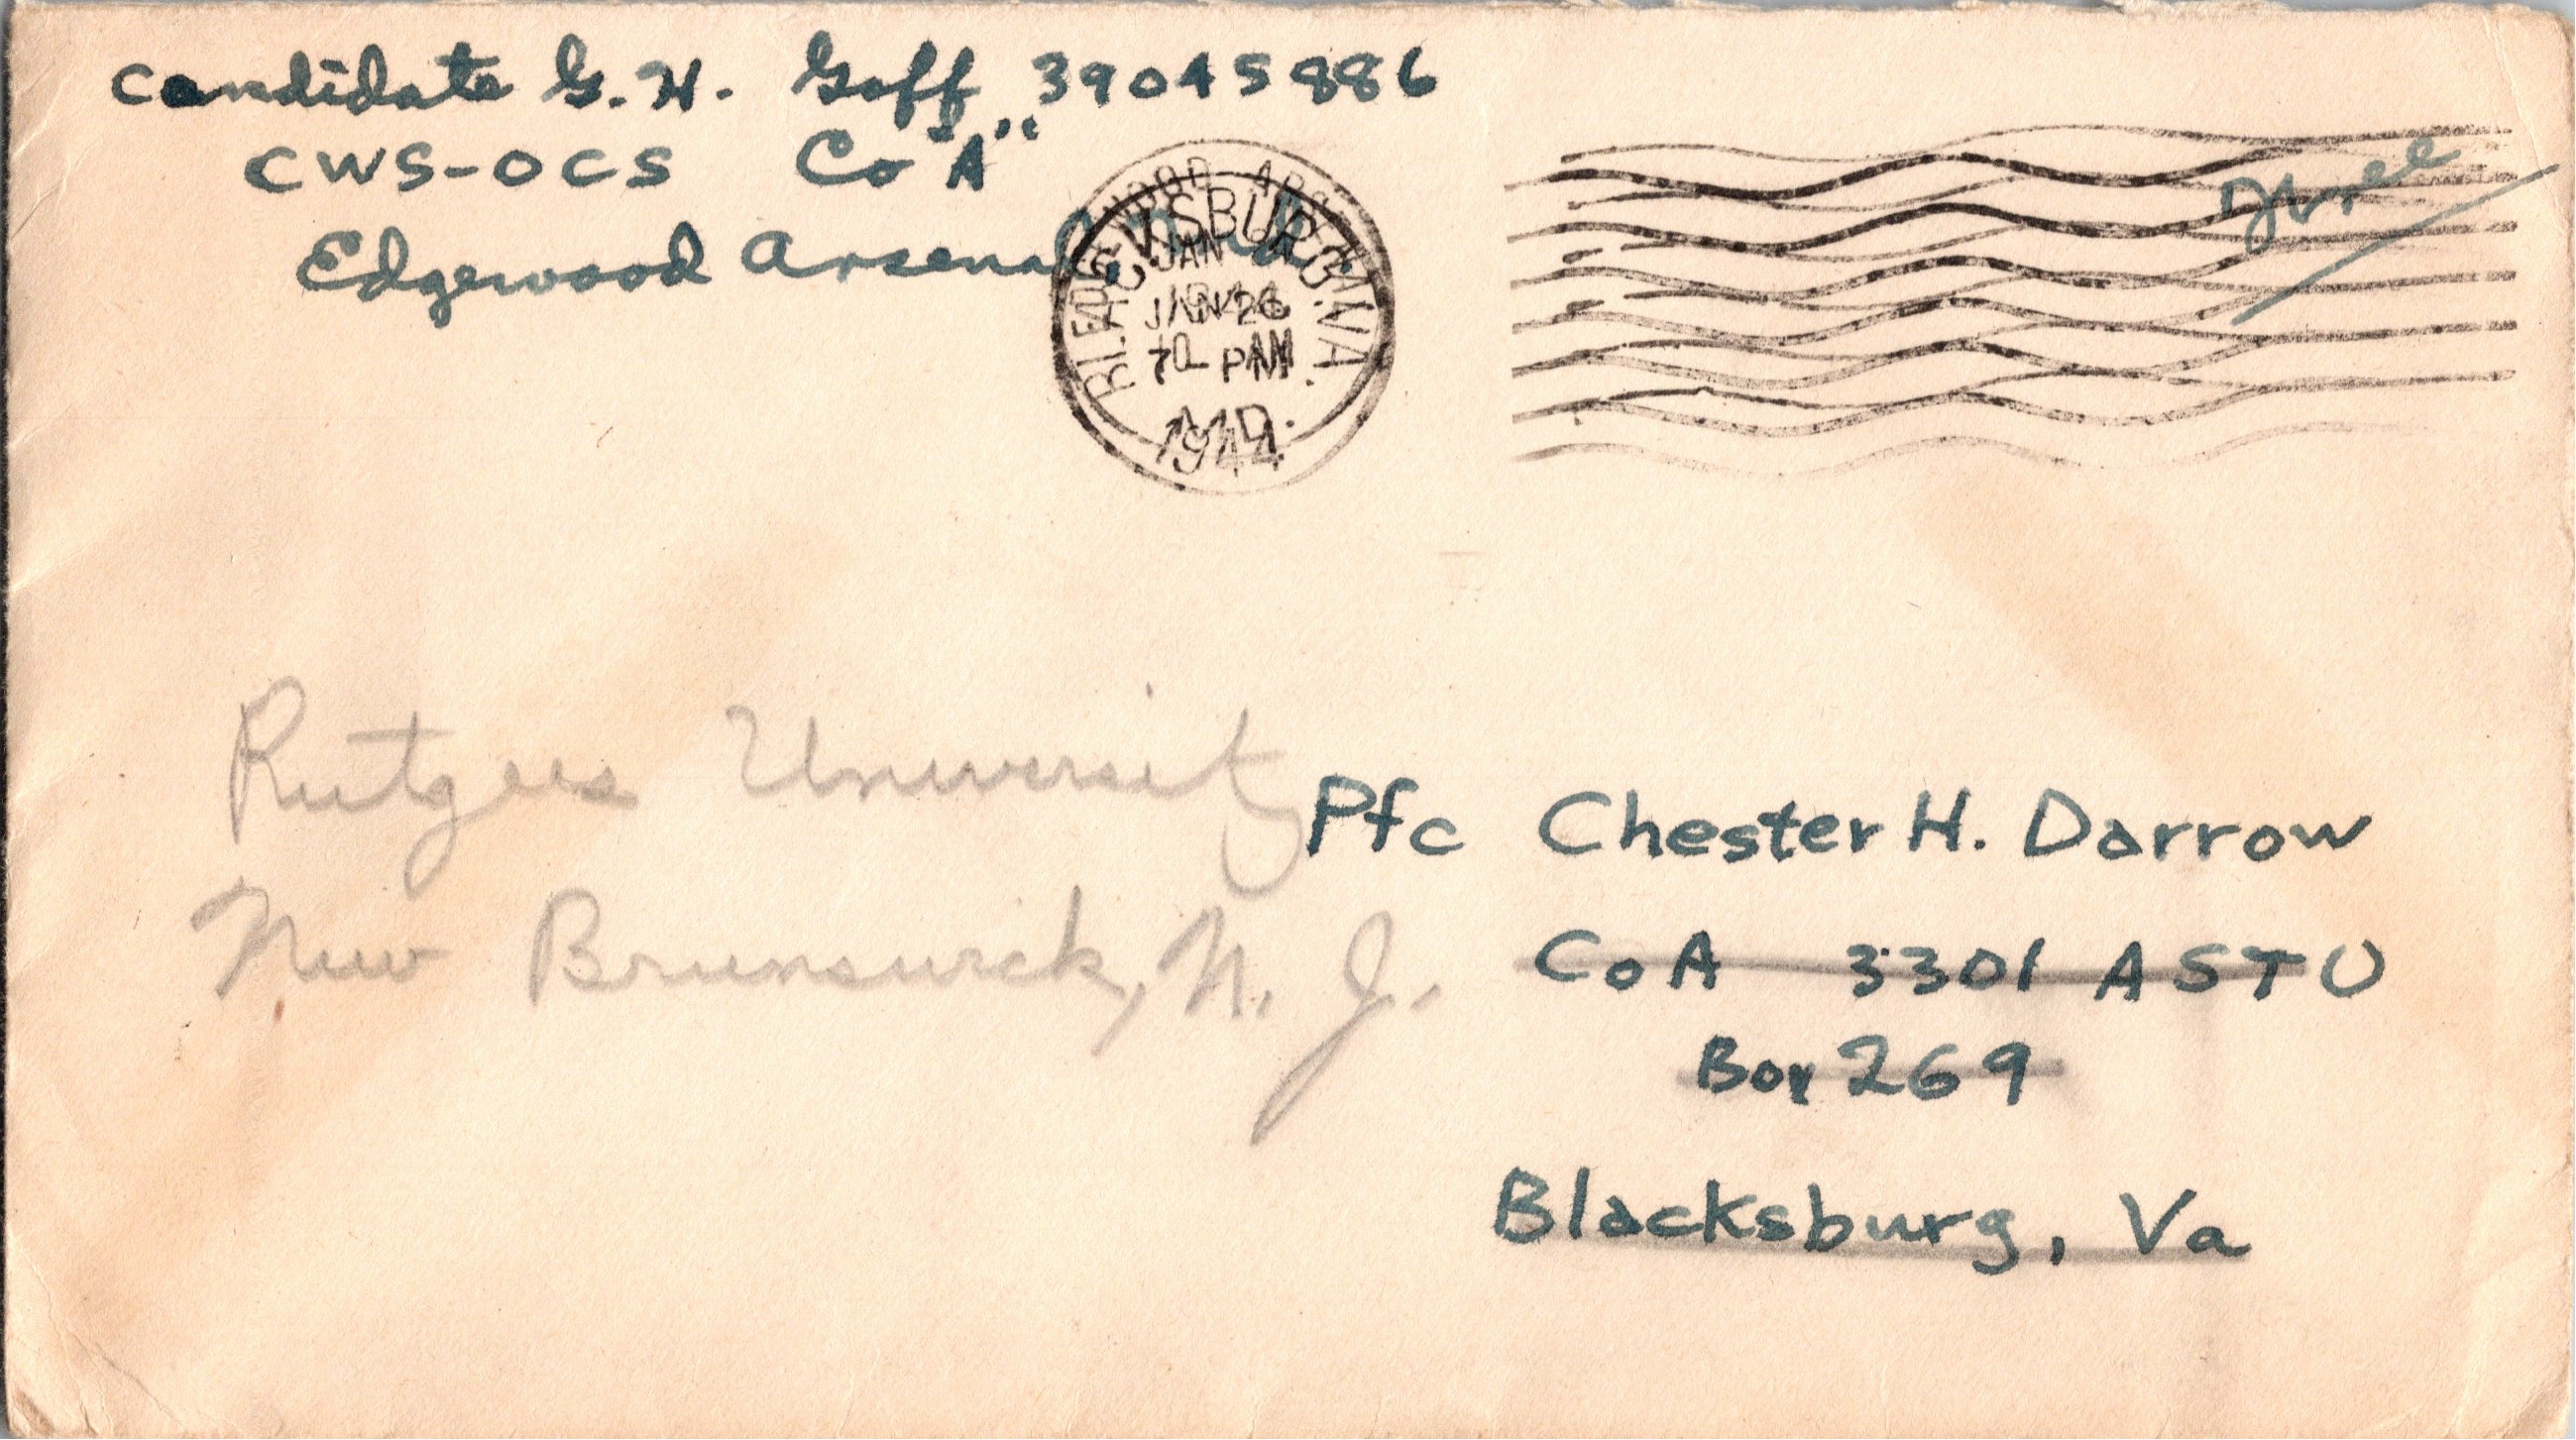 Candidate G. H. Goff 39045886
CWS-OCS Co "A"
Edgewood Arsenal, Md.
Free
BLACKSBURG VA.
EDGEWOOD
JAN 26
PM
MD.
1944
Rutgers University
New Brunswick, N. J.
Pfc Chester H. Darrow
Co A 3301 ASTU
Box 269
Blacksburg, Va